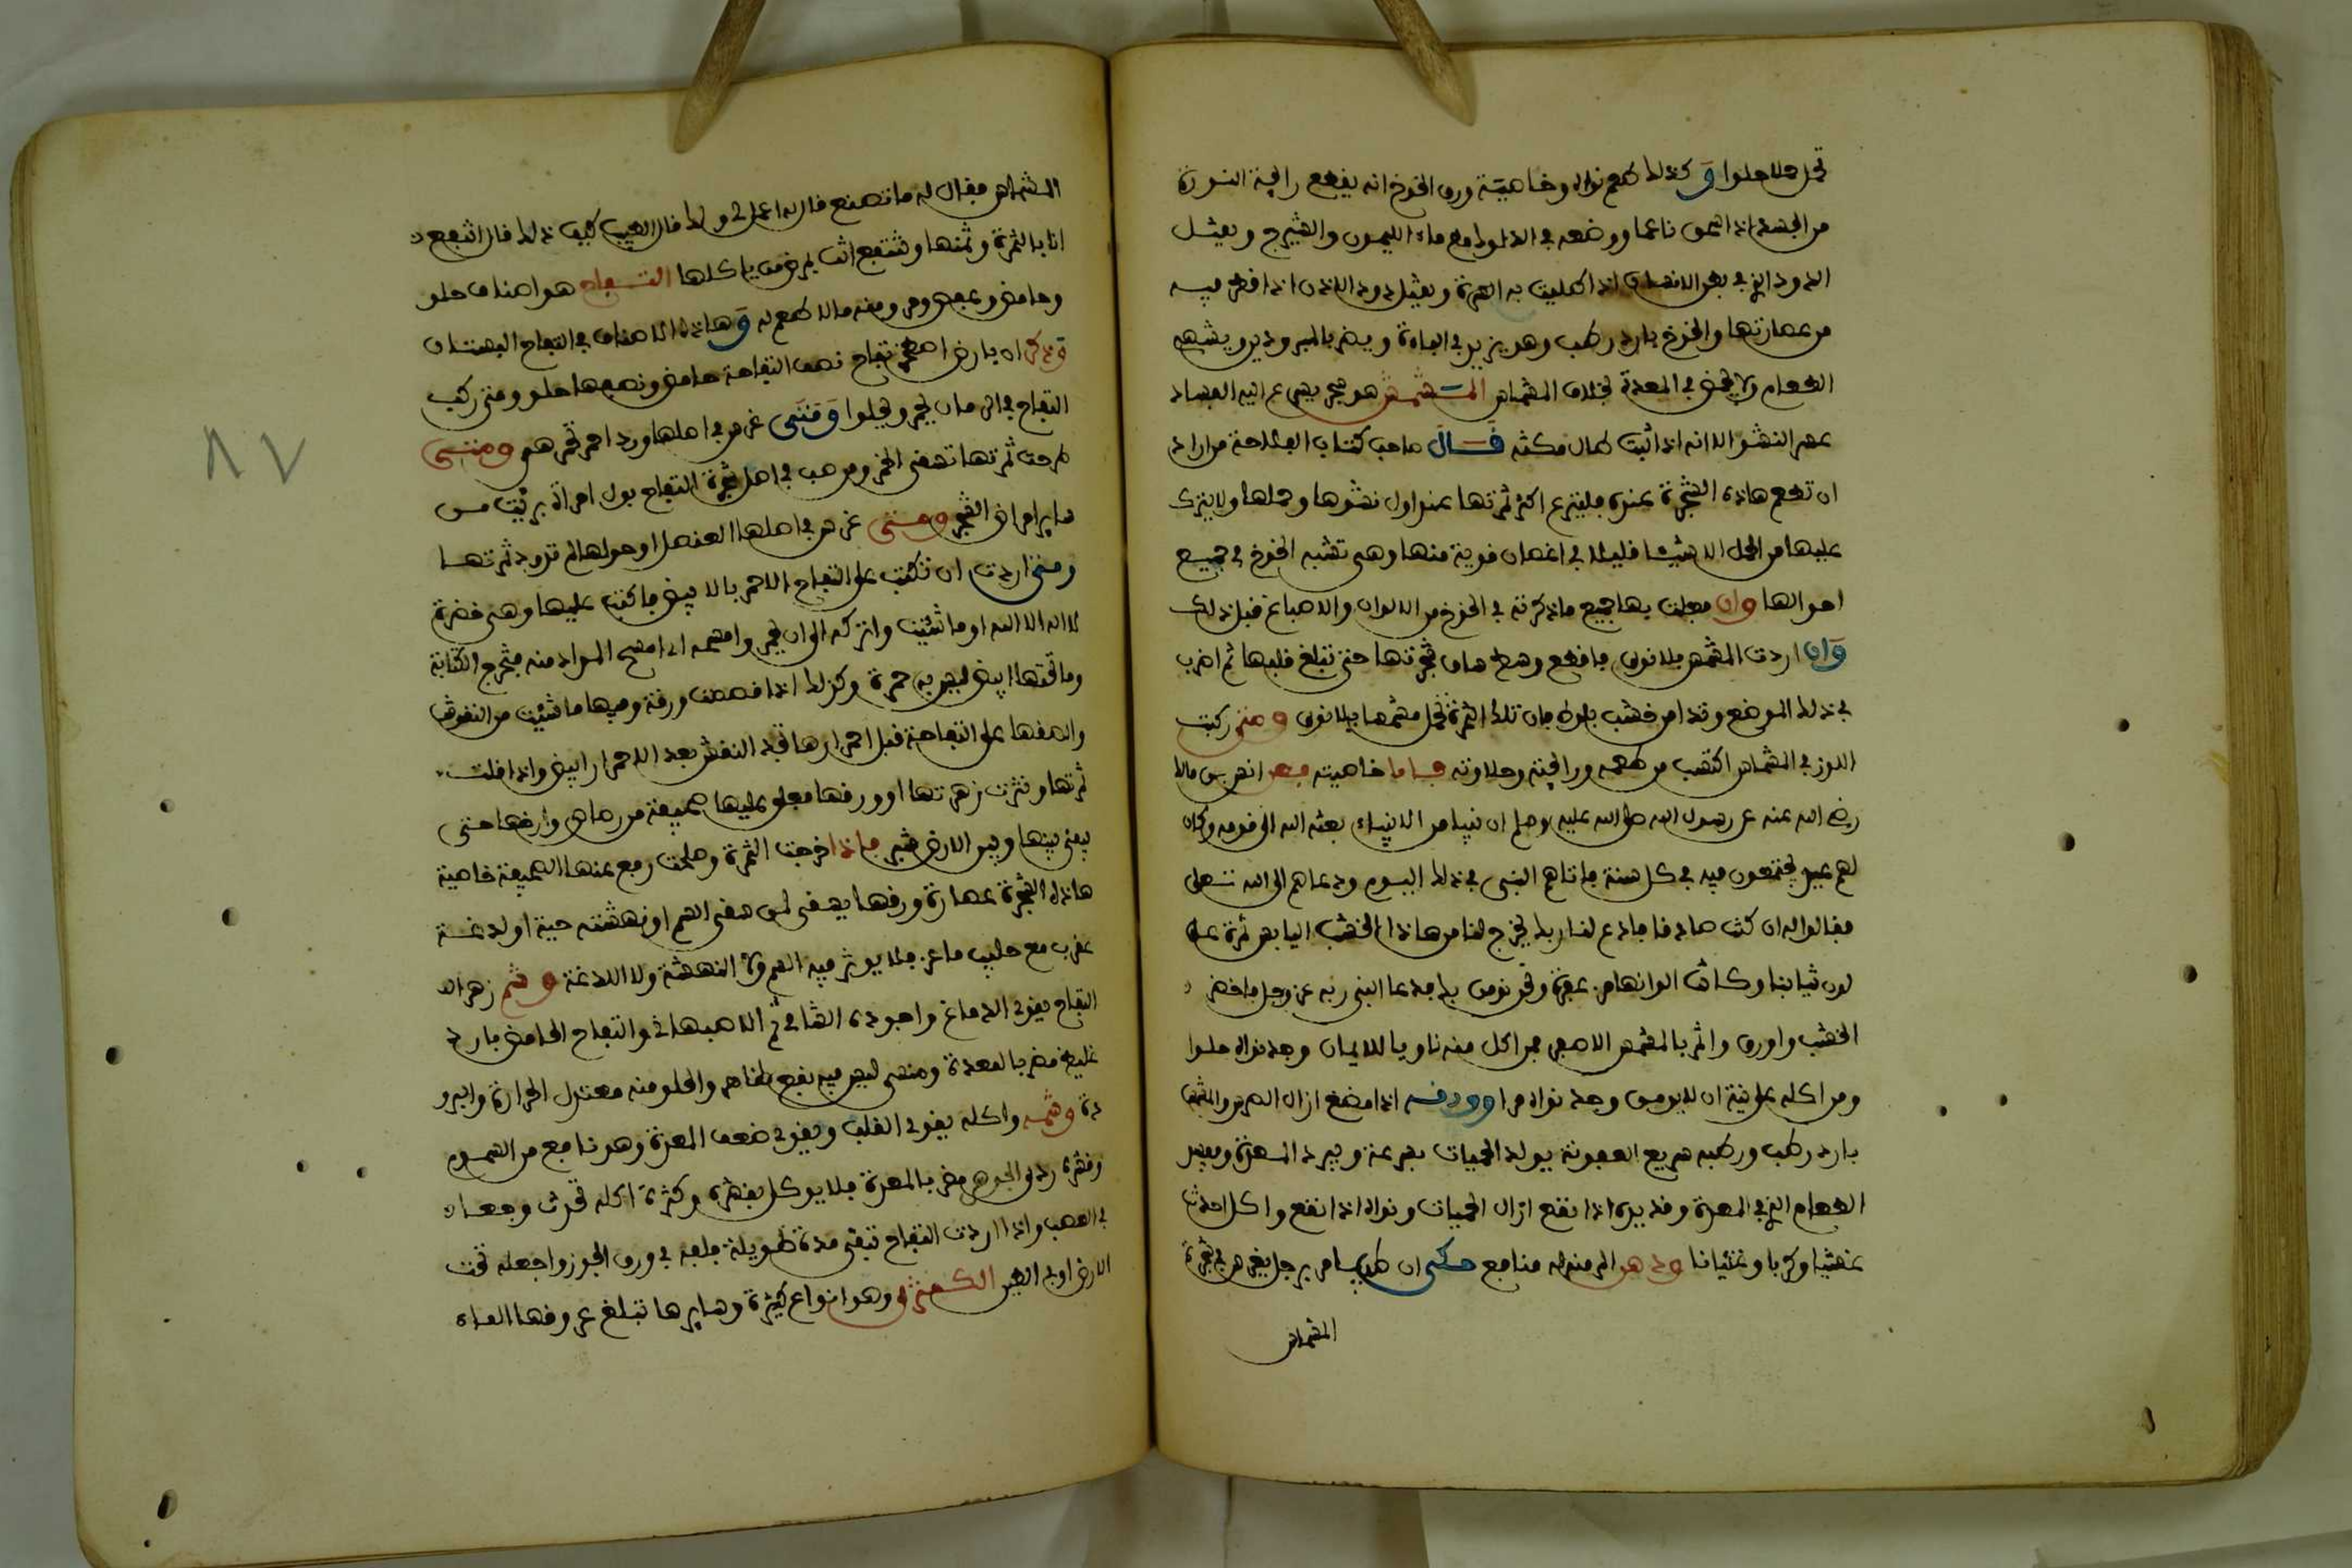 تحمل حملا حلوا وكذلك طعم نواه وخاصية ورق الخوخ انه يقطع رائحة النورة
من الجسد اذا سحق ناعما ووضعه في الدلوك مع ماء الليمون والشيرج ويقتل
الدود الذي في بطن الانسان اذا طليت به السرة ويقتل دود الاذن اذا قطر فيه
من عصارتها والخوخ بارد رطب وهو يزيد في الباءة ويضر بالمبرودين ويشهي
الطعام ولا يحمض في المعدة بخلاف المشماش المشمش هو شجر يسرع اليه الفساد
عسر النشو الا انه اذا ثبت طال مكثه قال صاحب كتاب الفلاحة من اراد
ان تطعم هاذه الشجرة عنده فلينزع اكثر ثمرتها عند اول نشوها وحملها ولا يترك
عليها من الحمل الا شيئا قليلا في اغصان قوية منها وهي تشبه الخوخ في جميع
احوالها وان فعلت بها جميع ما ذكرته في الخوخ من الالوان والاصباغ قبل ذلك
وان اردت المشمش بلا نوى فاقطع وسط ساق شجرتها حتى تبلغ قلبها ثم اضرب
في ذلك الموضع وتدا من خشب بلوط فان تلك الثمرة تحمل مشمشا بلا نوى ومتى ركبت
اللوز في المشماش اكتسب من طعمه ورائحته وحلاوته فاما خاصيته فعن انس بن مالك
رضي الله عنه عن رسول الله صلى الله عليه وسلم ان نبيا من الانبياء بعثه الله الى قومه وكان
لهم عيد يجتمعون فيه في كل سنة فاتاهم النبي في ذلك اليوم ودعاهم الى الله تعالى
فقالوا له ان كنت صادقا فادع لنا ربك يخرج لنا من هاذا الخشب اليابس ثمرة على
لون ثيابنا وكانت الوانها مزعفرة ونحن نومن بك فدعا النبي ربه عز وجل فاخضر
الخشب واورق واثمر بالمشمش الاصفر فمن اكل منه ناويا للايمان وجد نواه حلوا
ومن اكله على نية ان لا يومن وجد نواه مرا وورقه اذا مضغ ازال الضرس والمشمش
بارد رطب ورطبه سريع العفونة يولد الحميات بسرعة ويبرد المعدة ويفسد
الطعام الذي في المعدة وقديده اذا نقع ازال الحميات ونواه اذا نقع واكل احدث
عفشيا وكربا وغثيانا ودهن المر منه له منافع حكى ان طبيبا مر برجل يغرس شجرة
المشماش
المشماش فقال له ما تصنع فال له اعمل لي ولك فال الطبيب كيف ذلك فال انتفع
انا بالثمرة وثمنها وتنتفع انت بمرض من ياكلها التفاح هو اصناف حلو
وحامض وعفص ومر ومنه ما لا طعم له وهاذه الاصناف في التفاح البستان
وذكر ان بارض اصطخر تفاح نصف التفاحة حامض ونصفها حلو ومتى ركب
التفاح في الرمان يحمر ويحلوا ومتى غرس في اصلها ورد احمر تحمر هو ومتى
طرحت ثمرتها تسقى الخمر ومن صب في اصل شجرة التفاح بول امراة برئت من
ساير امراض الشجر ومتى غرس في اصلها العنصل او حولها لم تدود ثمرتها
ومتى اردت ان تكتب على التفاح الاحمر بالابيض فاكتب عليها وهي خضرة
لا اله الا الله او ما شئت واتركه الى ان يحمر وامسحه اي امسح المداد منه فتخرج الكتابة
وما تحتها ابيض ليس به حمرة وكذلك اذا قصصت ورقة وفيها ما شئت من النقوش
والصقها على التفاحة قبل احمرارها تجد النقش بعد الاحمرار ابيض واذا قلت
ثمرتها ونثرت زهرتها او ورقها فعلق عليها صحيفة من رصاص وارخها حتى
يبقى بينها وبين الارض شبر فاذا خرجت الثمرة وصلحت رفع عنها الصحيفة خاصية
هاذه الشجرة عصارة ورقها يسقى لمن سقي السم او نهشته حية او لدغته
عقرب مع حليب ماعز فلا يوثر فيه السم ولا النهشة ولا اللدغة وشم زهر
التفاح يقوي الدماغ واجوده الشامي ثم الاصبهاني والتفاح الحامض بارد
غليظ مضر بالمعدة ومنسي ليس فيه نفع ظاهر والحلو منه معتدل الحرارة والبرو
دة وشمه واكله يقوي القلب ويقوي ضعف المعدة وهو نافع من السموم
وقشره ردي الجوهر مضر بالمعدة فلا يوكل بقشره وكثرة اكله تحدث وجعا
في العصب واذا اردت التفاح تبقى مدة طويلة فلفه في ورق الجوز واجعله تحت
الارض او في الطين الكمثرى وهو انواع كثيرة وسايرها تبلغ عروقها الماء
٨٧